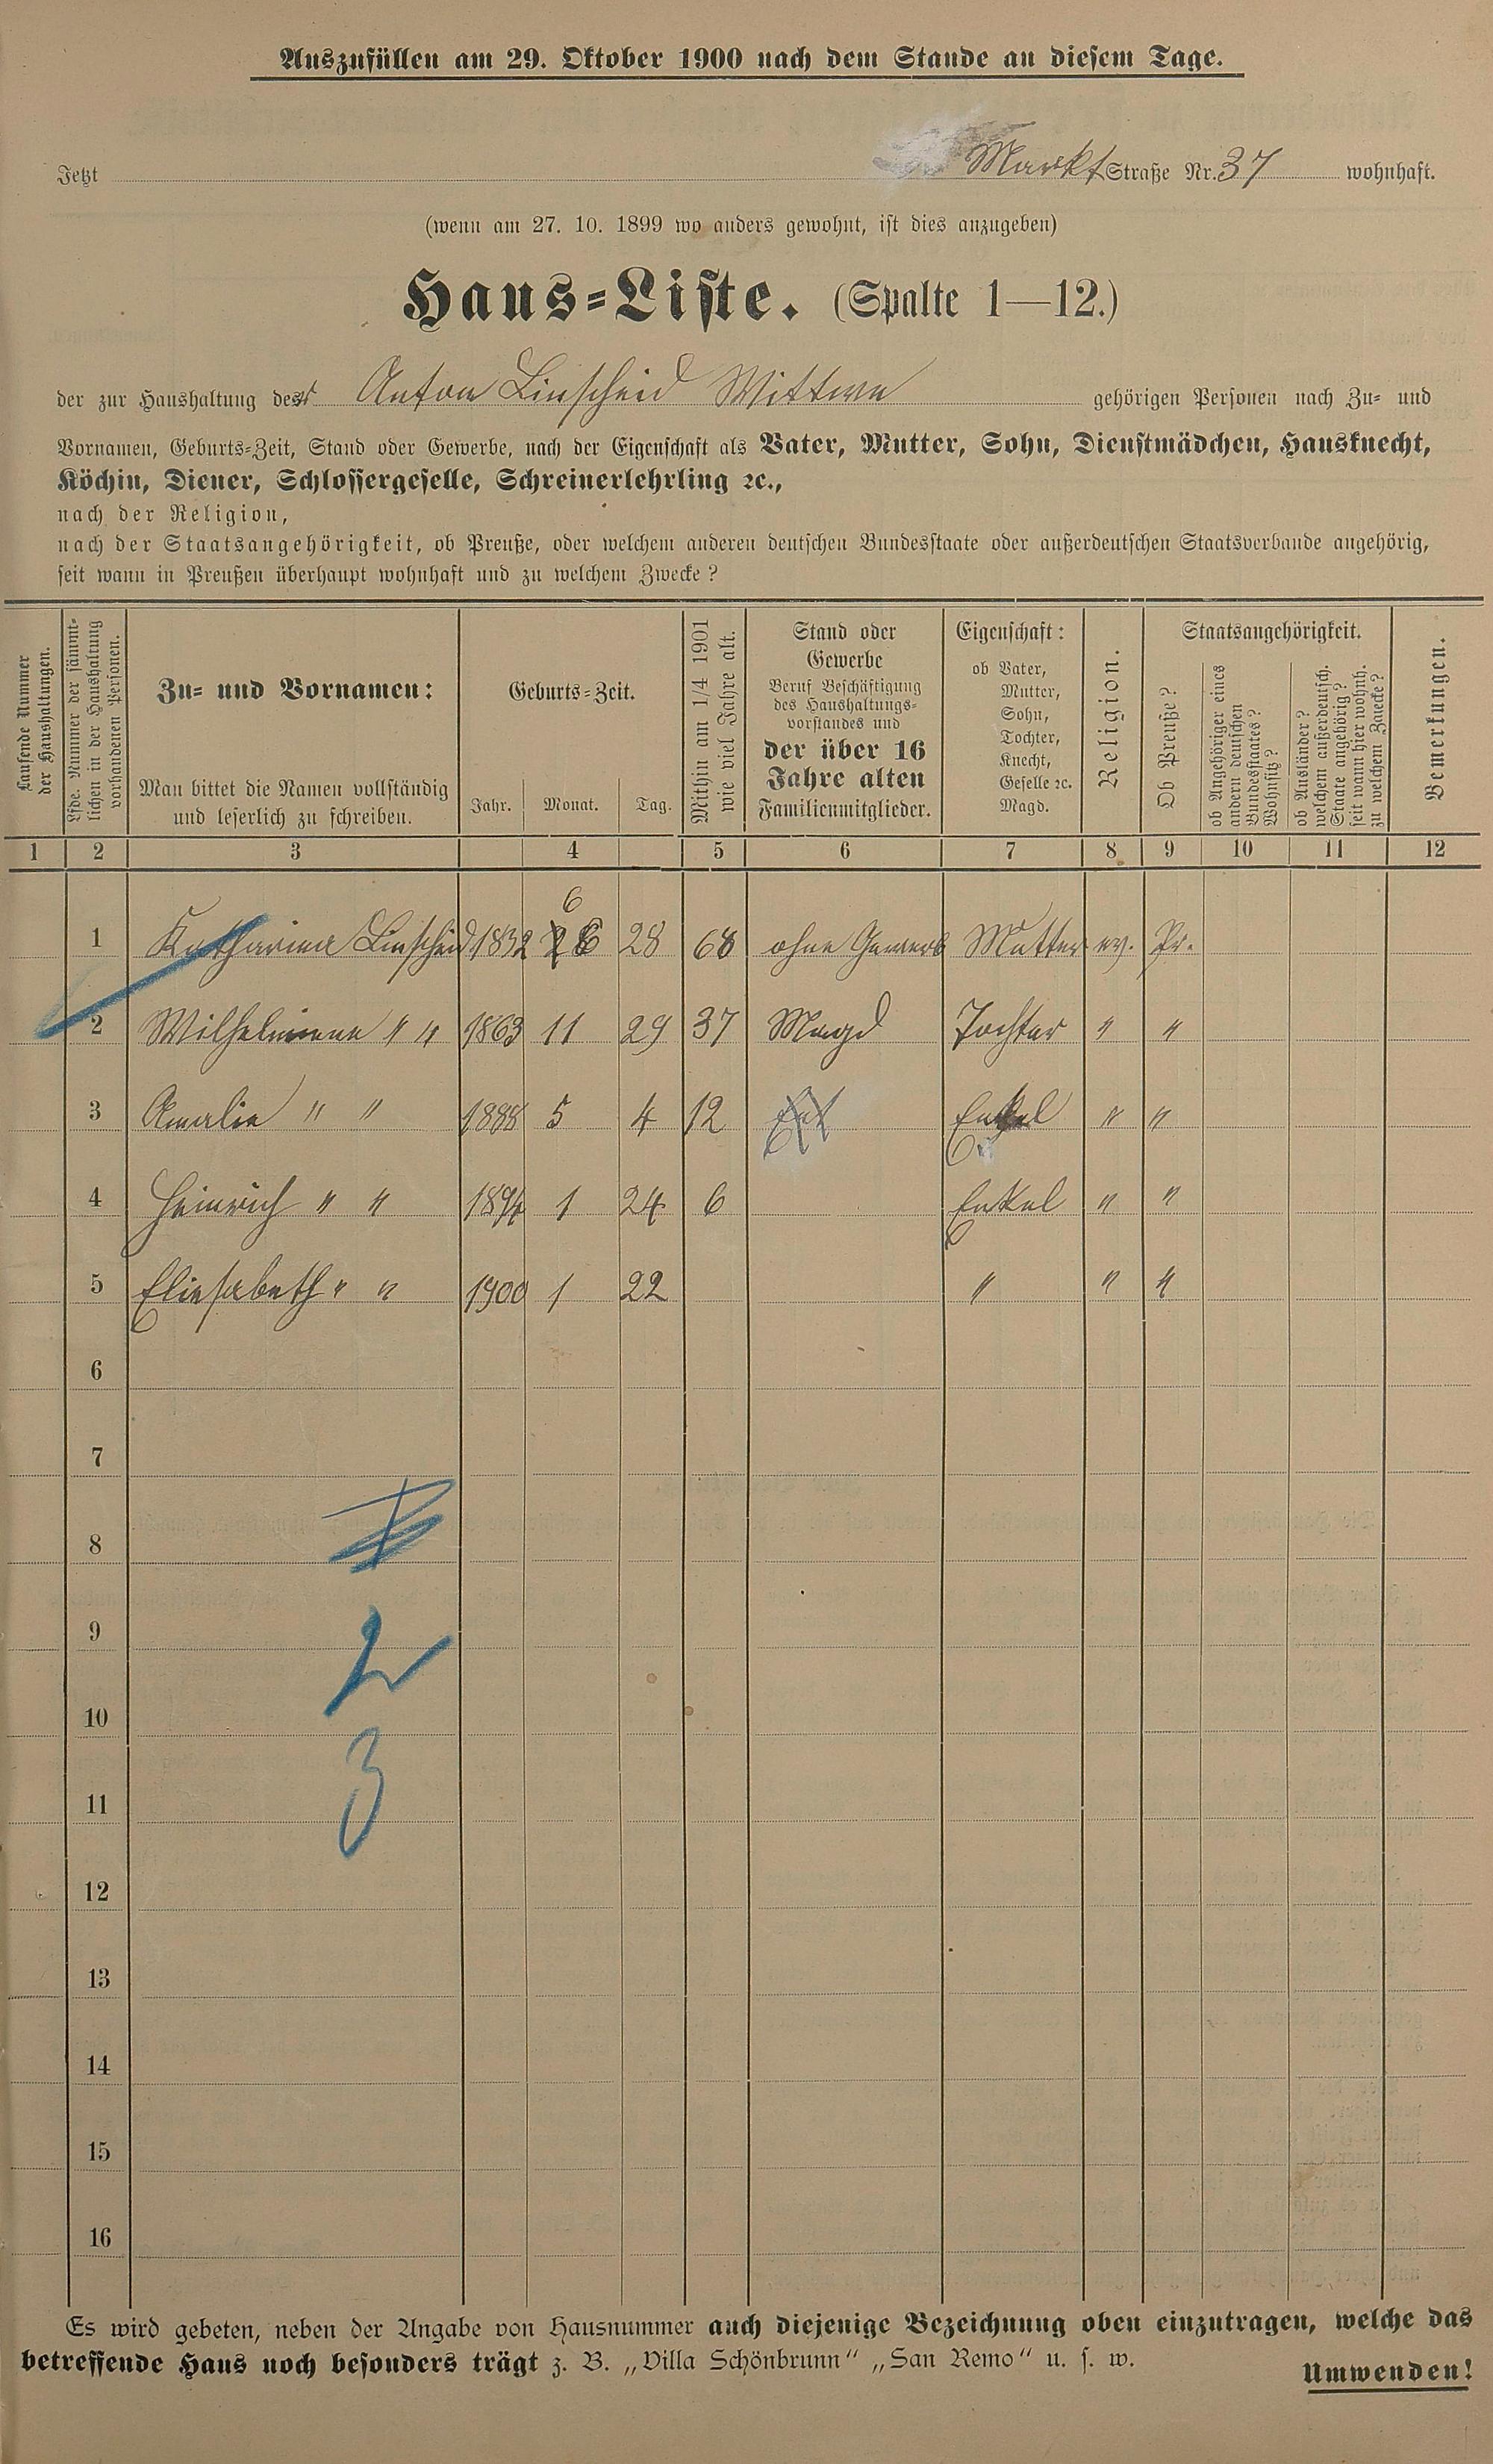 Auszufüllen am 29. Oktober 1900 nach dem Stande an diesem Tage.
Jetzt Markt Straße Nr. 37 wohnhaft.
(wenn am 27. 10. 1899 wo anders gewohnt, ist dies anzugeben)
Haus-Liste. (Spalte 1—12.)
der zur Haushaltung der Anton Linscheid Wittwe gehörigen Personen nach Zu- und
Vornamen, Geburts-Zeit, Stand oder Gewerbe, nach der Eigenschaft als Vater, Mutter, Sohn, Dienstmädchen, Hausknecht,
Köchin, Diener, Schlossergeselle, Schreinerlehrling ꝛc.,
nach der Religion,
nach der Staatsangehörigkeit, ob Preuße, oder welchem anderen deutschen Bundesstaate oder außerdeutschen Staatsverbande angehörig,
seit wann in Preußen überhaupt wohnhaft und zu welchem Zwecke?
Laufende Nummer
der Haushaltungen.
Lfde. Nummer der sämmt-
lichen in der Haushaltung
vorhandenen Personen.
Zu- und Vornamen:
Man bittet die Namen vollständig
und leserlich zu schreiben.
Geburts-Zeit.
Jahr. Monat. Tag.
Mithin am 1/4 1901
wie viel Jahre alt.
Stand oder
Gewerbe
Beruf Beschäftigung
des Haushaltungs-
vorstandes und
der über 16
Jahre alten
Familienmitglieder.
Eigenschaft:
ob Vater,
Mutter,
Sohn,
Tochter,
Knecht,
Geselle ꝛc.
Magd.
Religion.
Staatsangehörigkeit.
Ob Preuße?
ob Angehöriger eines
andern deutschen
Bundesstaates?
Wohnsitz?
ob Ausländer?
welchem außerdeutsch.
Staate angehörig?
seit wann hier wohnh.
zu welchem Zwecke?
Bemerkungen.
1 2 3 4 5 6 7 8 9 10 11 12
6
1 Katharina Linscheid 1832 28 68 ohne Gewerb Mutter ev. Pr.
2 Wilhelmine " " 1863 11 29 37 Magd Tochter " "
3 Amalie " " 1888 5 4 12 Enkel " "
4 Heinrich " " 1894 1 24 6 Enkel " "
5 Eliesabeth " " 1900 1 22 " " "
6
7
8
9
2
10
3
11
12
13
14
15
16
Es wird gebeten, neben der Angabe von Hausnummer auch diejenige Bezeichnung oben einzutragen, welche das
betreffende Haus noch besonders trägt z. B. „Villa Schönbrunn“ „San Remo“ u. s. w.
Umwenden!